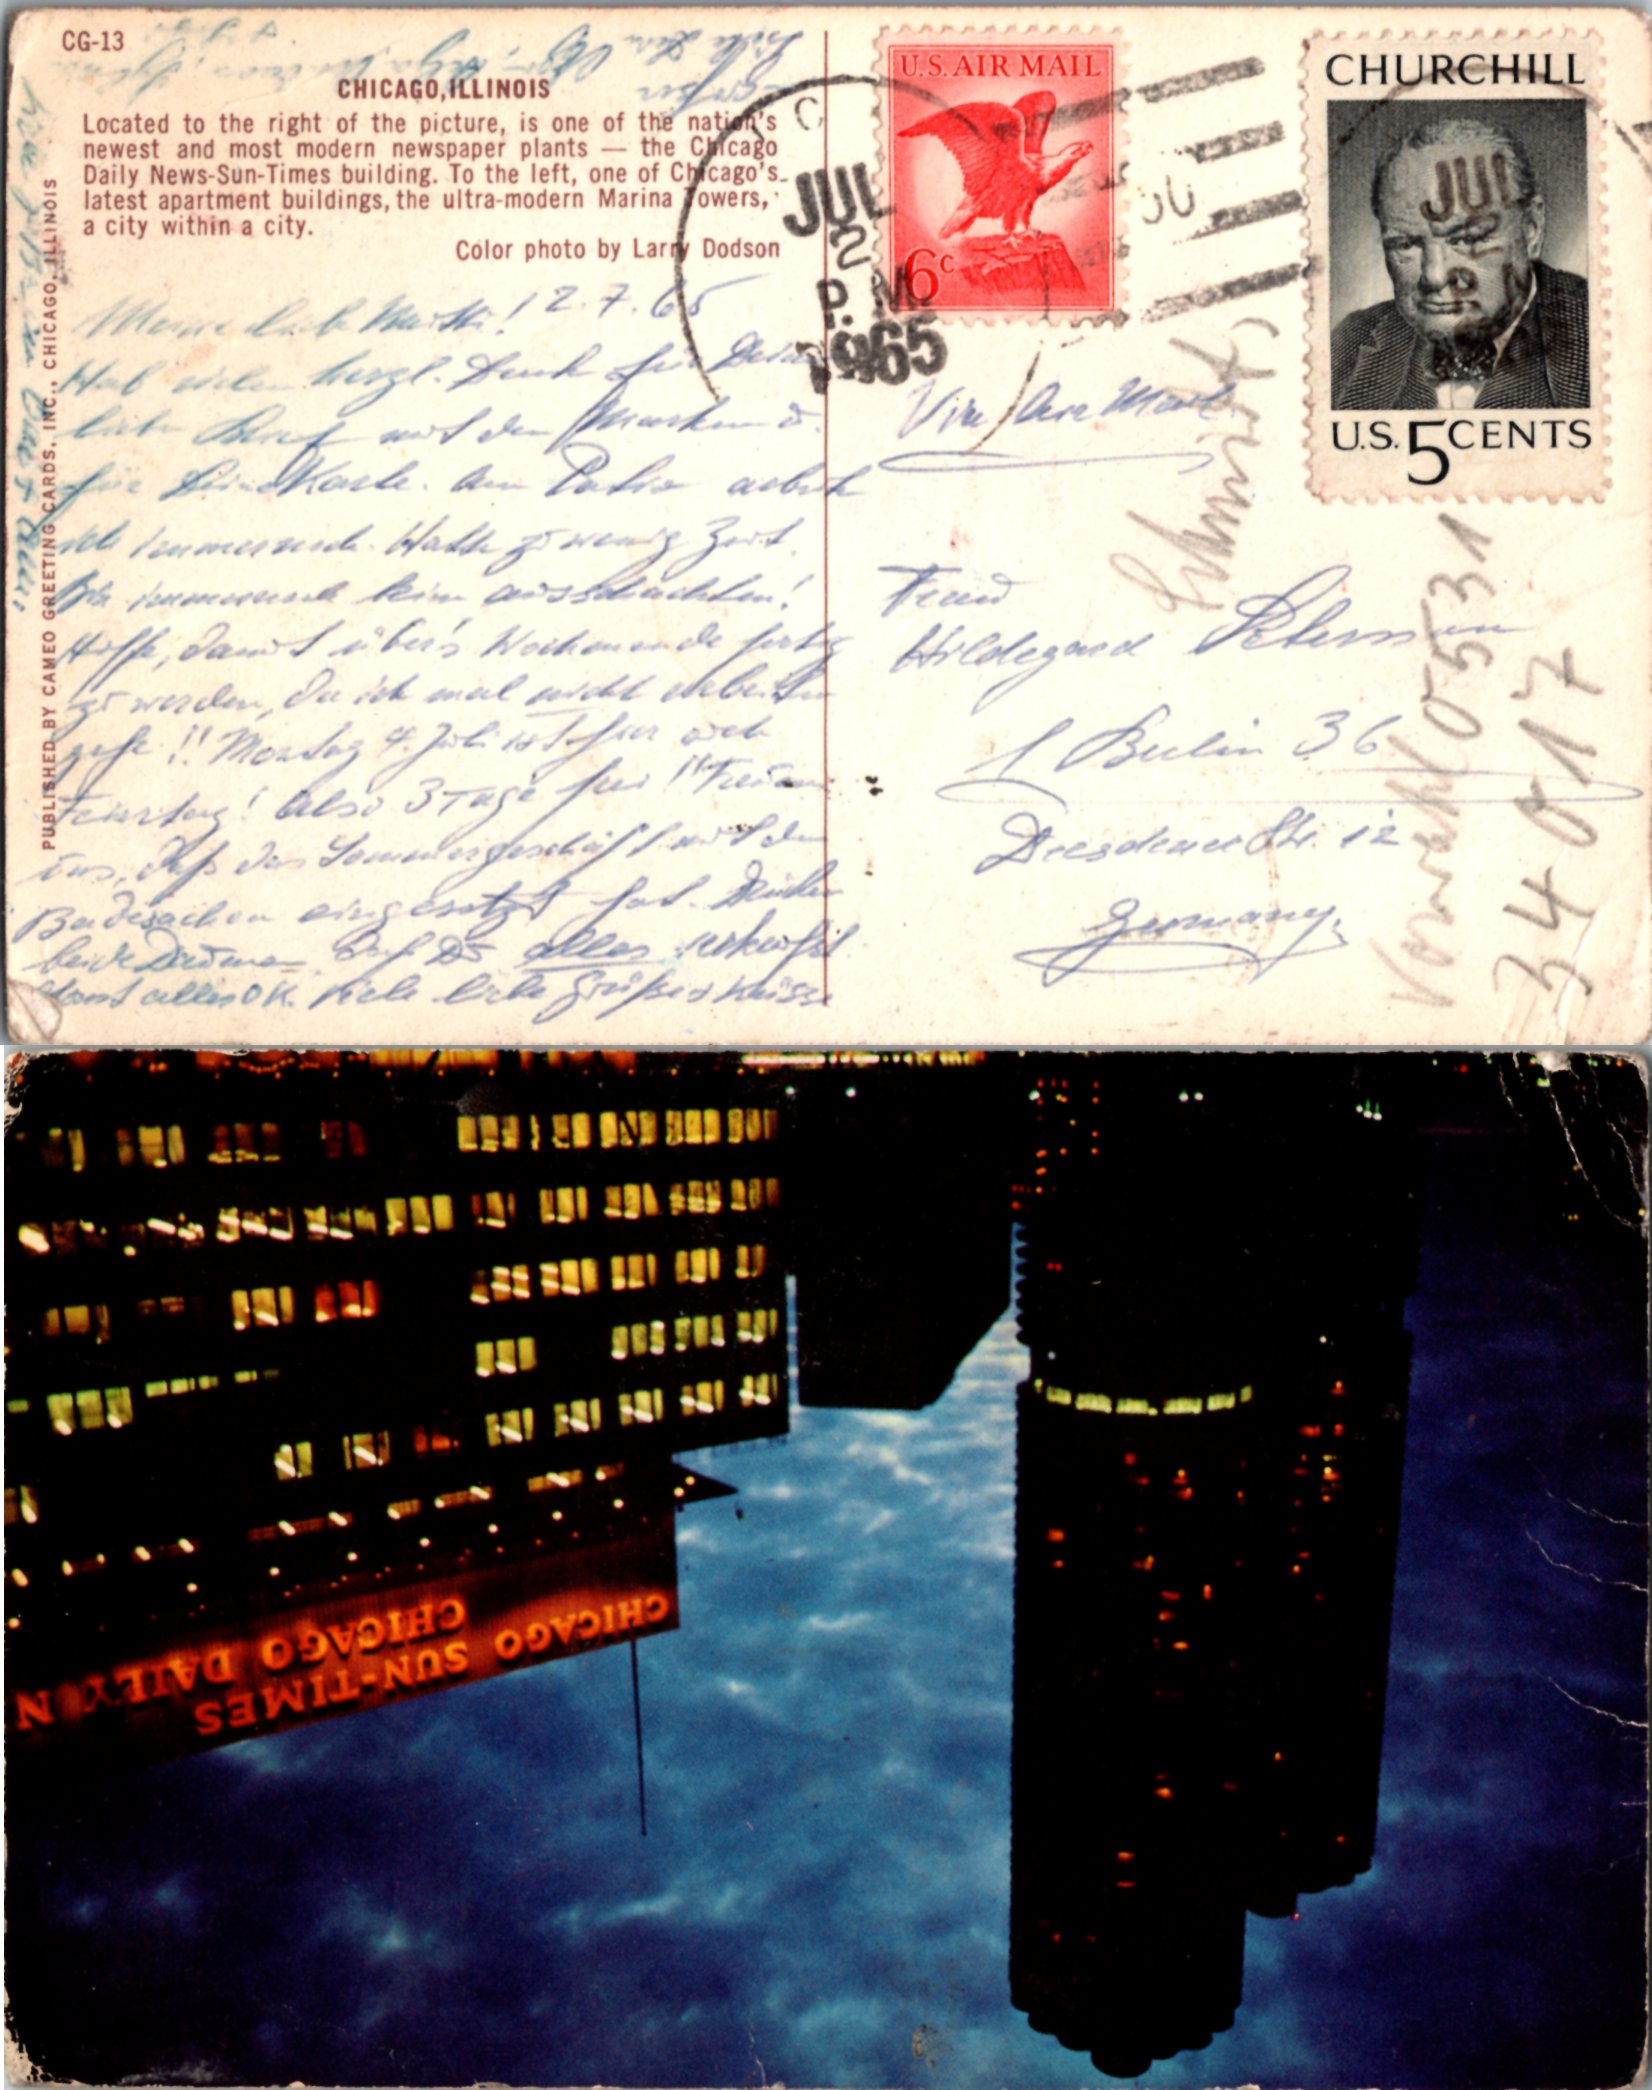 CG-13
CHICAGO, ILLINOIS
Located to the right of the picture, is one of the nation's
newest and most modern newspaper plants — the Chicago
Daily News-Sun-Times building. To the left, one of Chicago's
latest apartment buildings, the ultra-modern Marina Towers,
a city within a city.
Color photo by Larry Dodson
PUBLISHED BY CAMEO GREETING CARDS, INC., CHICAGO, ILLINOIS
U.S. AIR MAIL
6c
CHURCHILL
U.S. 5 CENTS
JUL
2
P.M
1965
JUL
2
Meine liebe 2.7.65
Hab vielen herzl. Dank für Deinen
lieben Brief mit den Marken u.
für Deine Karte. Am Patio arbeite
ich immernoch. Hatte zu wenig Zeit.
Bin immernoch beim ausschachten!
Hoffe, damit über's Wochenende fertig
zu werden, da ich mal nicht arbeiten
gehe!! Montag 4. Juli ist hier auch
Feiertag! Also 3 Tage frei!! Freuen
uns, daß das Sommergeschäft mit den
Badesachen eingesetzt hat. Drücken
beide Daumen, daß Du alles verkaufst.
Sonst alles OK. Viele liebe Grüße u Küsse
Via Air Mail
Frau
Hildegard Petersen
1 Berlin 36
Dresdener Str. 12
Germany
Vorwahl 0531
34017
CHICAGO SUN-TIMES
CHICAGO DAILY N